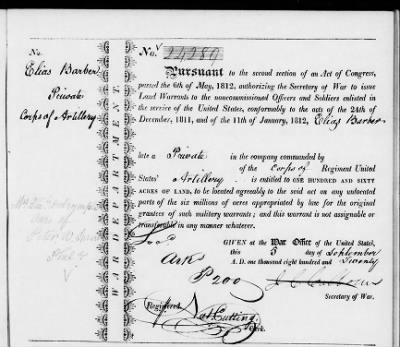 No.
Elias Barber
Private
Corps of Artillery
WAR DEPARTMENT.
No. 24289
Pursuant to the second section of an Act of Congress,
passed the 6th of May, 1812, authorizing the Secretary of War to issue
Land Warrants to the noncommissioned Officers and Soldiers enlisted in
the service of the United States, conformably to the acts of the 24th of
December, 1811, and of the 11th of January, 1812, Elias Barber
late a Private in the company commanded by
of the Corps of Regiment United
States' Artillery is entitled to ONE HUNDRED AND SIXTY
ACRES OF LAND, to be located agreeably to the said act on any unlocated
parts of the six millions of acres appropriated by law for the original
grantees of such military warrants; and this warrant is not assignable or
transferable in any manner whatever.
GIVEN at the War Office of the United States,
this 5 day of September
A. D. one thousand eight hundred and Twenty
Ark
P 200
J C Calhoun
Secretary of War.
Registered
Nat Cutting
Clerk.